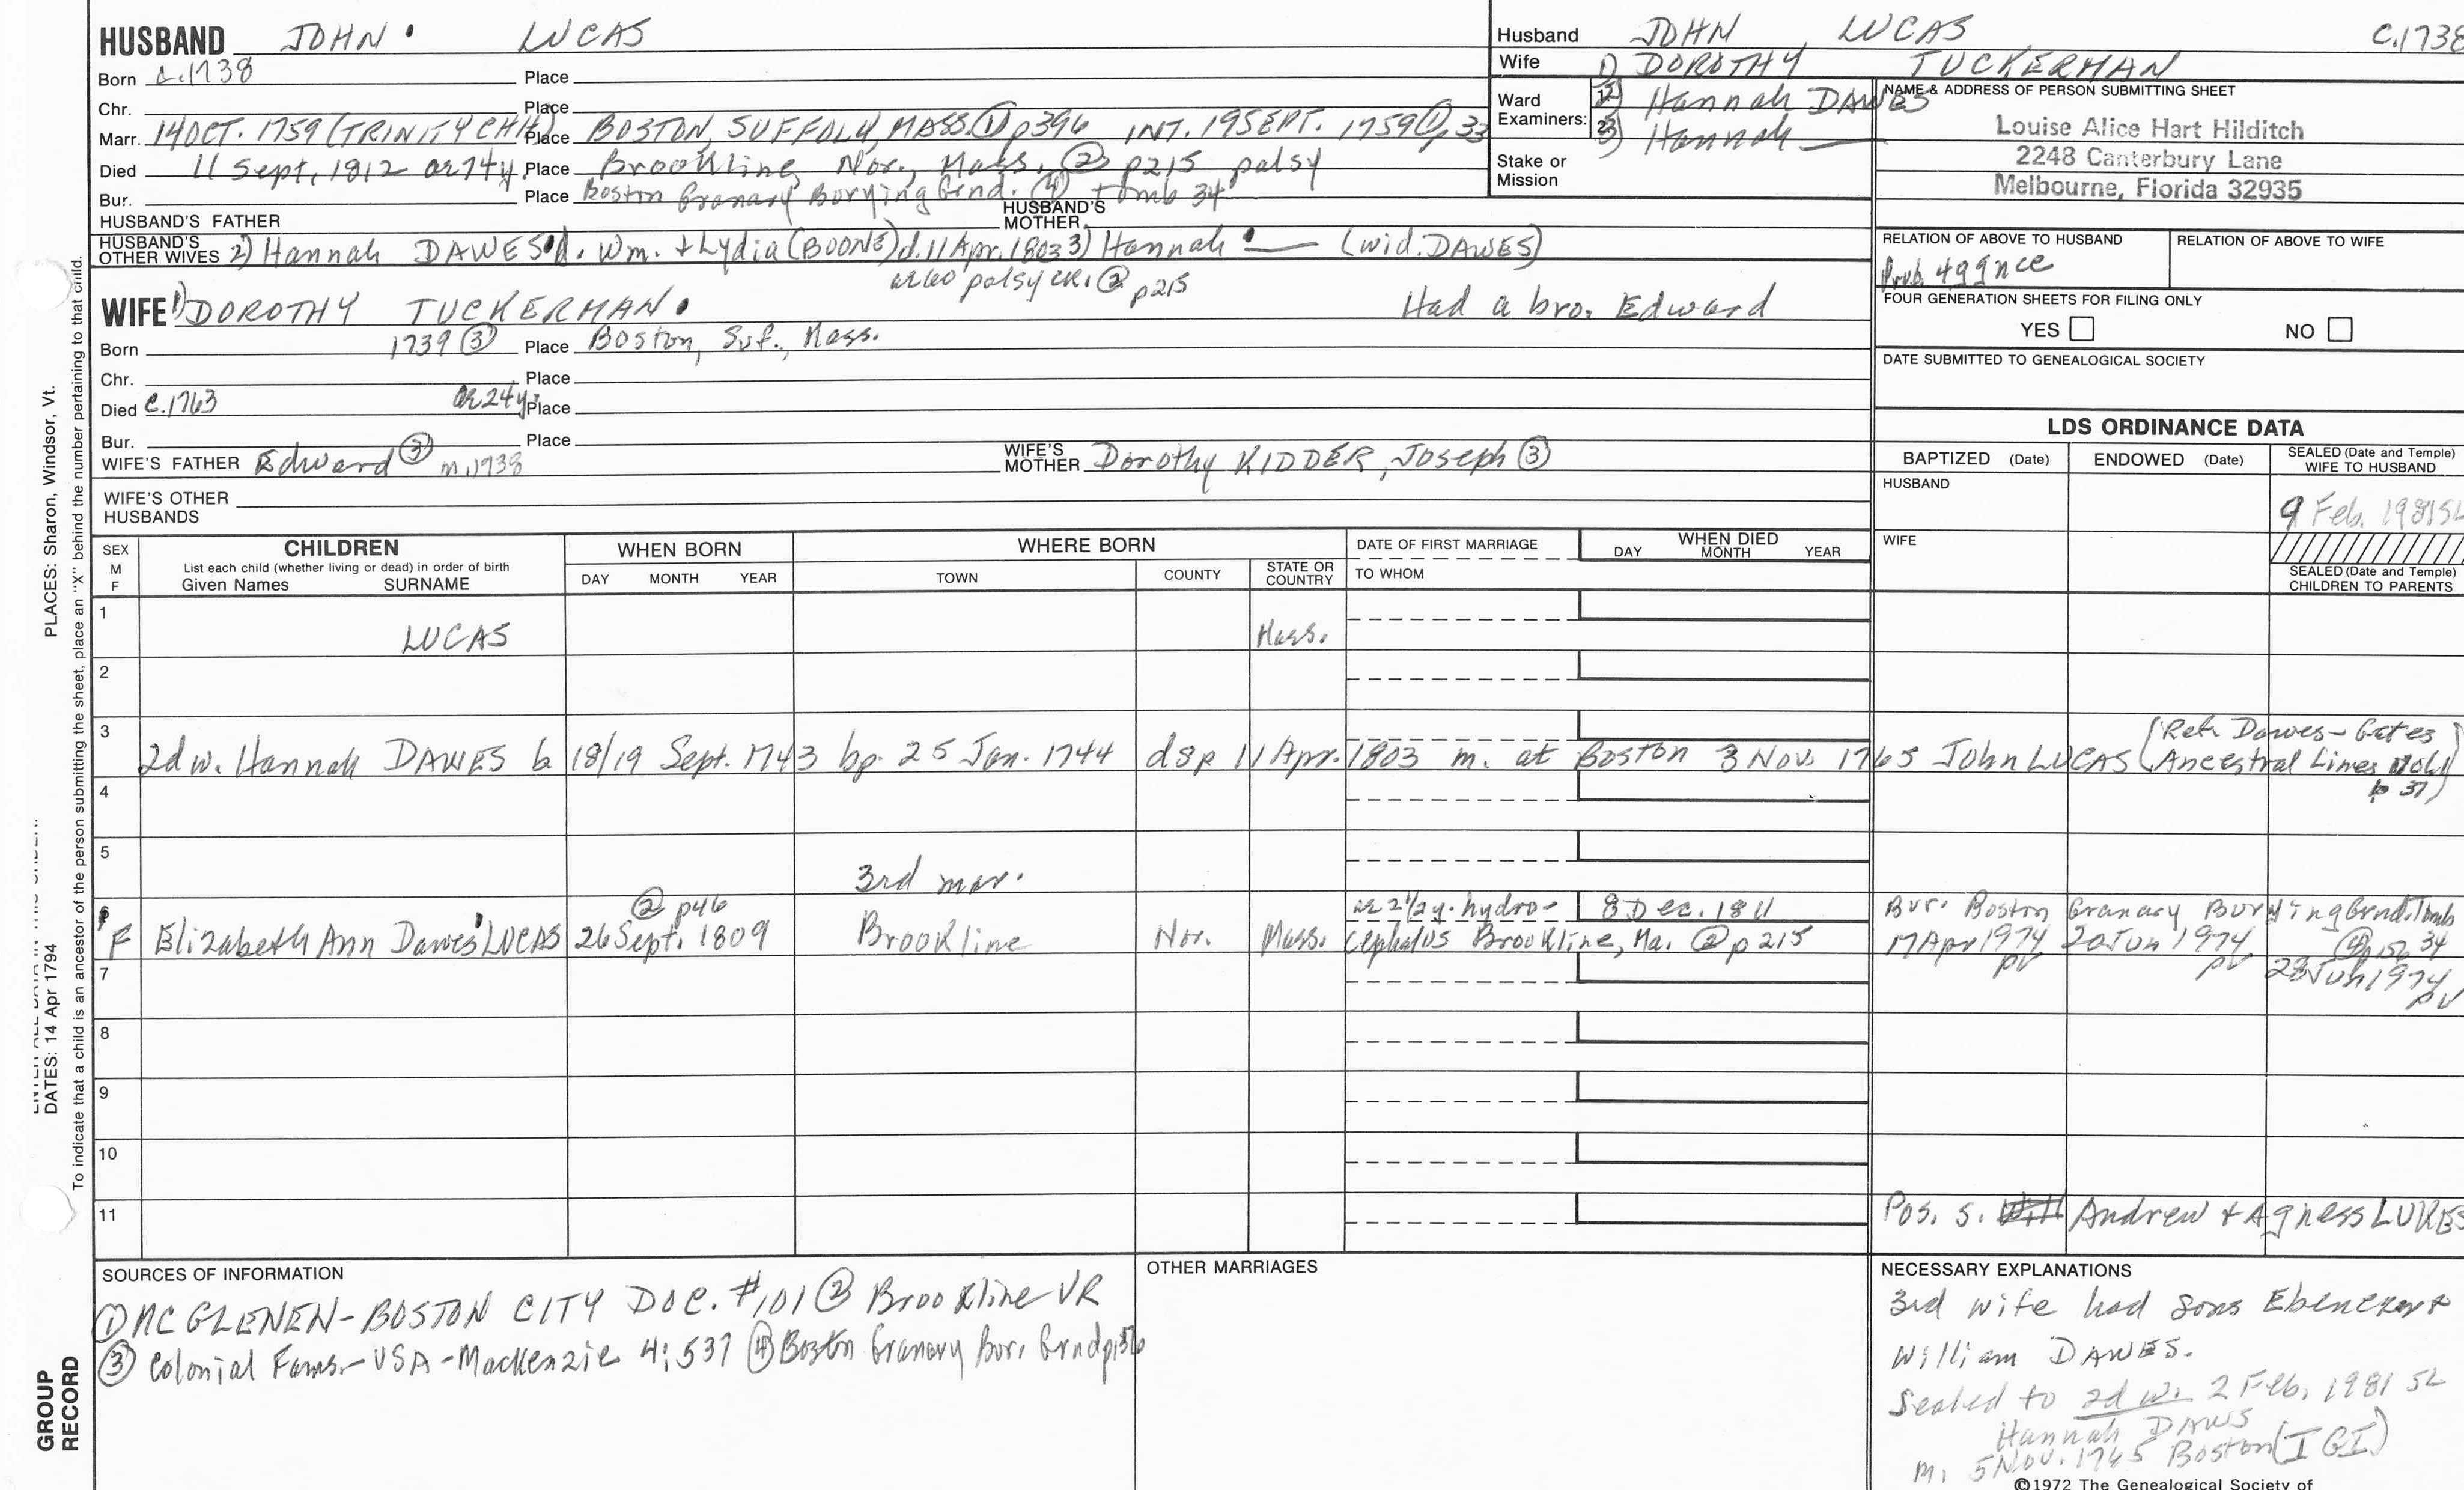 HUSBAND JOHN LUCAS
Born c.1738 Place
Chr. Place
Marr. 14 OCT. 1759 (TRINITY CHH) Place BOSTON, SUFFOLK, MASS. ① p396 INT. 19 SEPT. 1759 ①, 33
Died 11 Sept, 1812 ae 74y Place Brookline, Nor., Mass. ② p215 palsy
Bur. Place Boston Granary Burying Grnd. ④ tomb 34
HUSBAND'S FATHER HUSBAND'S MOTHER
HUSBAND'S OTHER WIVES 2) Hannah DAWES d. Wm. + Lydia (BOONE) d. 11 Apr. 1803 3) Hannah — (wid. DAWES)
ae 60 palsy CR. ② p215
WIFE 1) DOROTHY TUCKERMAN Had a bro. Edward
Born 1739 ③ Place Boston, Suf., Mass.
Chr. Place
Died c.1763 ae 24y Place
Bur. Place
WIFE'S FATHER Edward ③ m. 1738 WIFE'S MOTHER Dorothy KIDDER, Joseph ③
WIFE'S OTHER HUSBANDS
Husband JOHN LUCAS C.1738
Wife 1) DOROTHY TUCKERMAN
Ward Examiners: 1. 2) Hannah DAWES
2. 3) Hannah —
Stake or Mission
NAME & ADDRESS OF PERSON SUBMITTING SHEET
Louise Alice Hart Hilditch
2248 Canterbury Lane
Melbourne, Florida 32935
RELATION OF ABOVE TO HUSBAND RELATION OF ABOVE TO WIFE
Prob. 4ggnce
FOUR GENERATION SHEETS FOR FILING ONLY
YES NO
DATE SUBMITTED TO GENEALOGICAL SOCIETY
LDS ORDINANCE DATA
BAPTIZED (Date) ENDOWED (Date) SEALED (Date and Temple) WIFE TO HUSBAND
HUSBAND 9 Feb. 1981 SL
WIFE
SEALED (Date and Temple) CHILDREN TO PARENTS
SEX M F CHILDREN WHEN BORN WHERE BORN DATE OF FIRST MARRIAGE WHEN DIED
List each child (whether living or dead) in order of birth
Given Names SURNAME DAY MONTH YEAR TOWN COUNTY STATE OR COUNTRY TO WHOM DAY MONTH YEAR
1
LUCAS Mass.
2
3
2d w. Hannah DAWES b 18/19 Sept. 1743 bp. 25 Jan. 1744 dsp 11 Apr. 1803 m. at Boston 3 Nov. 1765 John LUCAS (Ref. Dawes-Gates Ancestral Lines Vol I p 37)
4
5
3rd mar.
6
F Elizabeth Ann Dawes LUCAS 26 Sept. 1809 ② p46 Brookline Nor. Mass. ae 2 1/2 y. hydro- 8 Dec. 1811 Bur. Boston Granary Burying Grnd. Tomb 34
cephalus Brookline, Ma. ② p 215 17 Apr 1974 pv 20 Jun 1974 pv 28 Jun 1974 pv
7
8
9
10
11
Pos. s. Andrew + Agness LUKES
SOURCES OF INFORMATION
① MC GLENEN-BOSTON CITY DOC. #101 ② Brookline VR
③ Colonial Fams-USA-Mackenzie 4:537 ④ Boston Granary Bur. Grnd p156
OTHER MARRIAGES
NECESSARY EXPLANATIONS
3rd wife had sons Ebenezer +
William DAWES.
Sealed to 2d w. 2 Feb. 1981 SL
Hannah DAWS
m. 5 Nov. 1765 Boston (IGI)
©1972 The Genealogical Society of
PLACES: Sharon, Windsor, Vt.
DATES: 14 Apr 1794
To indicate that a child is an ancestor of the person submitting the sheet, place an "X" behind the number pertaining to that child.
GROUP RECORD